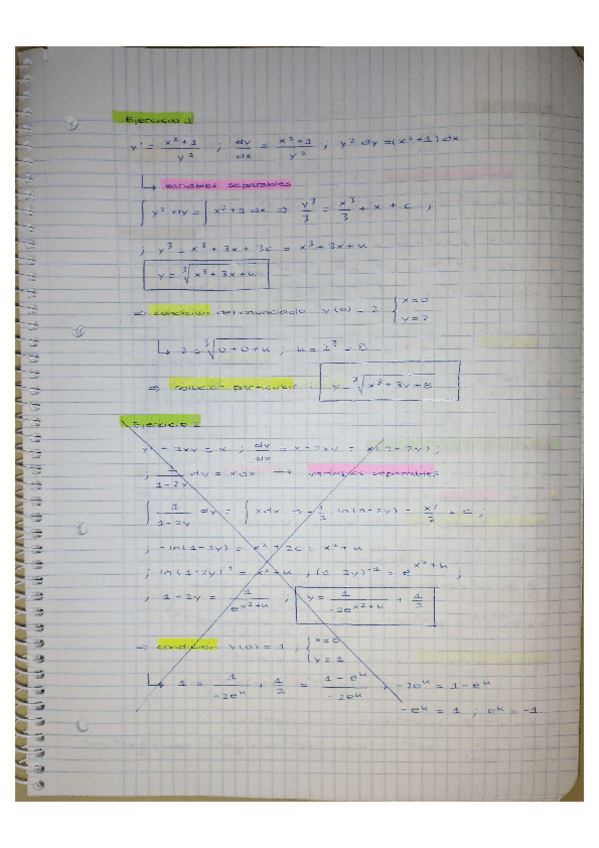 Ejercicio 1
y' = x²+1 / y² ; dy/dx = x²+1 / y² ; y² dy = (x²+1) dx
↳ variables separables
∫ y² dy = ∫ x²+1 dx ⇒ y³/3 = x³/3 + x + c ;
; y³ = x³ + 3x + 3c = x³ + 3x + k
y = ∛(x³ + 3x + k)
⇒ condición del enunciado y(0) = 2 { x=0
y=2
↳ 2 = ∛(0+0+k) ; k = 2³ = 8
⇒ solución particular : y = ∛(x³ + 3x + 8)
Ejercicio 2
y' + 2xy = x ; dy/dx = x-2xy = x(1-2y) ;
; 1/(1-2y) dy = x dx → variables separables
∫ 1/(1-2y) dy = ∫ x dx → -1/2 ln(1-2y) = x²/2 + c ;
; -ln(1-2y) = x² + 2c = x² + k
; ln(1-2y)⁻¹ = x² + k ; (1-2y)⁻¹ = e^(x²+k) ;
; 1-2y = 1/e^(x²+k) ; y = 1/(-2e^(x²+k)) + 1/2
⇒ condición y(0) = 1 ; { x=0
y=1
↳ 1 = 1/(-2e^k) + 1/2 = (1-e^k)/(-2e^k) ; -2e^k = 1-e^k
-e^k = 1 ; e^k = -1